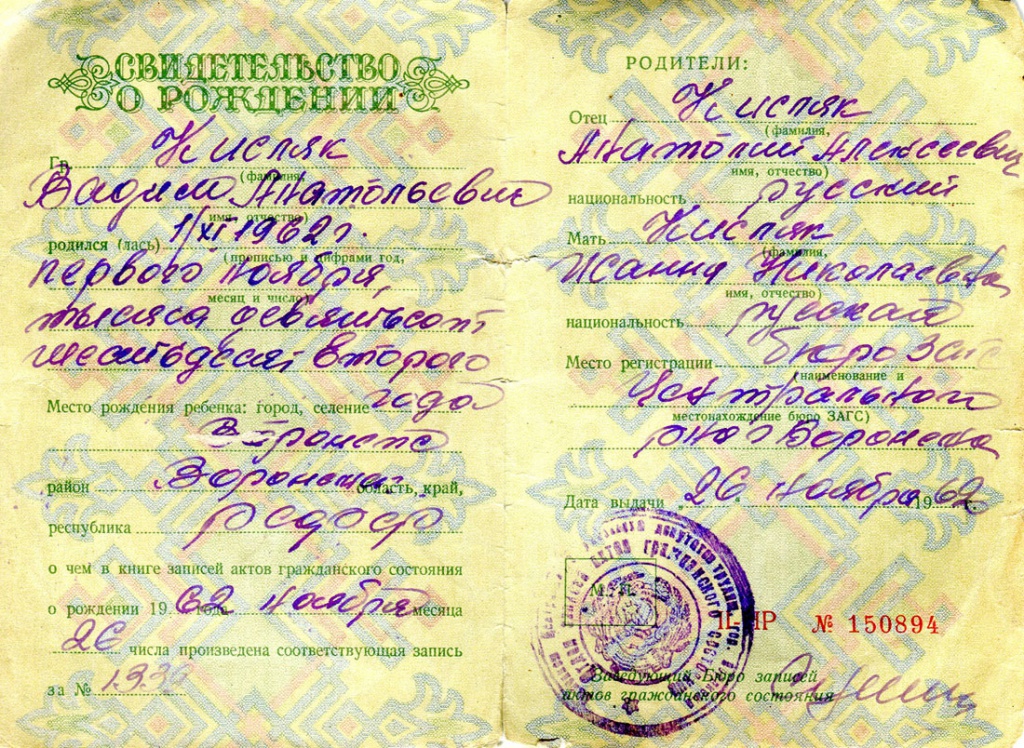 СВИДЕТЕЛЬСТВО
О РОЖДЕНИИ
Гр. Кисляк
(фамилия,
Вадим Анатольевич
имя, отчество)
родился (лась) 1/XI 1962 г.
(прописью и цифрами год,
первого ноября,
месяц и число)
тысяча девятьсот
шестьдесят второго
Место рождения ребенка: город, селение года
Воронеж
район Воронежск область, край,
республика РСФСР
о чем в книге записей актов гражданского состояния
о рождении 1962 года ноября месяца
26 числа произведена соответствующая запись
за №
РОДИТЕЛИ:
Отец Кисляк
(фамилия,
Анатолий Алексеевич
имя, отчество)
национальность русский
Мать Кисляк
(фамилия,
Жанна Николаевна
имя, отчество)
национальность русская
Место регистрации бюро ЗАГС
наименование и
Центрального
местонахождение бюро ЗАГС)
р-на г Воронежа
Дата выдачи 26 ноября 1962
М. П.
№ 150894
Заведующий Бюро записей
актов гражданского состояния